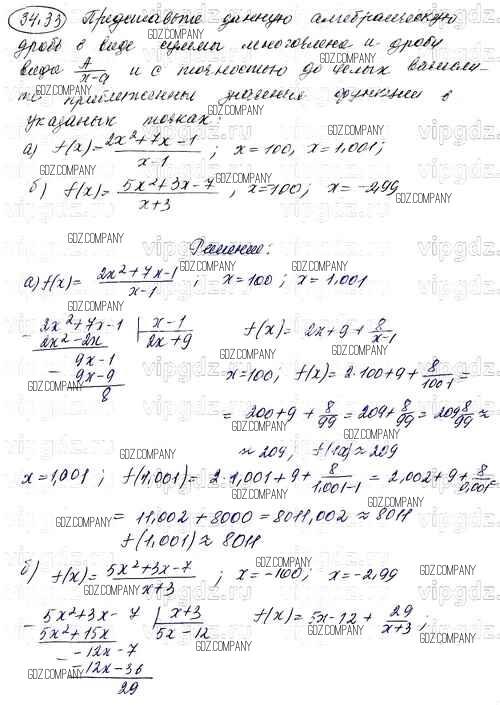 34.33 Представьте данную алгебраическую
дробь в виде суммы многочлена и дроби
вида A/(x-a) и с точностью до целых вычисли-
те приближенные значения функции в
указанных точках:
а) f(x)= (2x²+7x-1)/(x-1) ; x=100, x=1,001;
б) f(x)= (5x²+3x-7)/(x+3) , x=100; x=-2,99
Решение:
а) f(x)= (2x²+7x-1)/(x-1) ; x=100 ; x=1,001
- 2x²+7x-1 | x-1
2x²-2x | 2x+9
- 9x-1
9x-9
8
f(x)= 2x+9+ 8/(x-1)
x=100; f(x)= 2·100+9+ 8/(100-1) =
= 200+9+ 8/99 = 209+ 8/99 = 209 8/99 ≈
≈ 209, f(100) ≈ 209
x=1,001 ; f(1,001)= 2·1,001+9+ 8/(1,001-1) = 2,002+9+ 8/0,001 =
= 11,002+8000=8011,002≈8011
f(1,001)≈8011
б) f(x)= (5x²+3x-7)/(x+3) ; x=-100; x=-2,99
- 5x²+3x-7 | x+3
5x²+15x | 5x-12
- -12x-7
-12x-36
29
f(x)= 5x-12+ 29/(x+3) ;
GDZ.COMPANY
vipgdz.ru